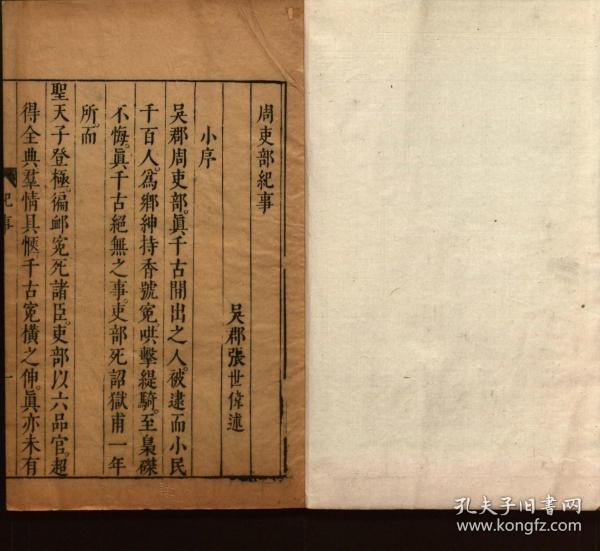 周吏部紀事
吳郡張世偉述
小序
吳郡周吏部。眞千古開出之人。被逮而小民
千百人。爲鄉紳持香號冤。哄擊緹騎。至梟磔
不悔。眞千古絕無之事。吏部死詔獄甫一年
所。而
聖天子登極。徧卹冤死諸臣。吏部以六品官。超
得全典羣情具愜千古冤橫之伸。眞亦未有
紀事
一
孔夫子旧书网
www.kongfz.com